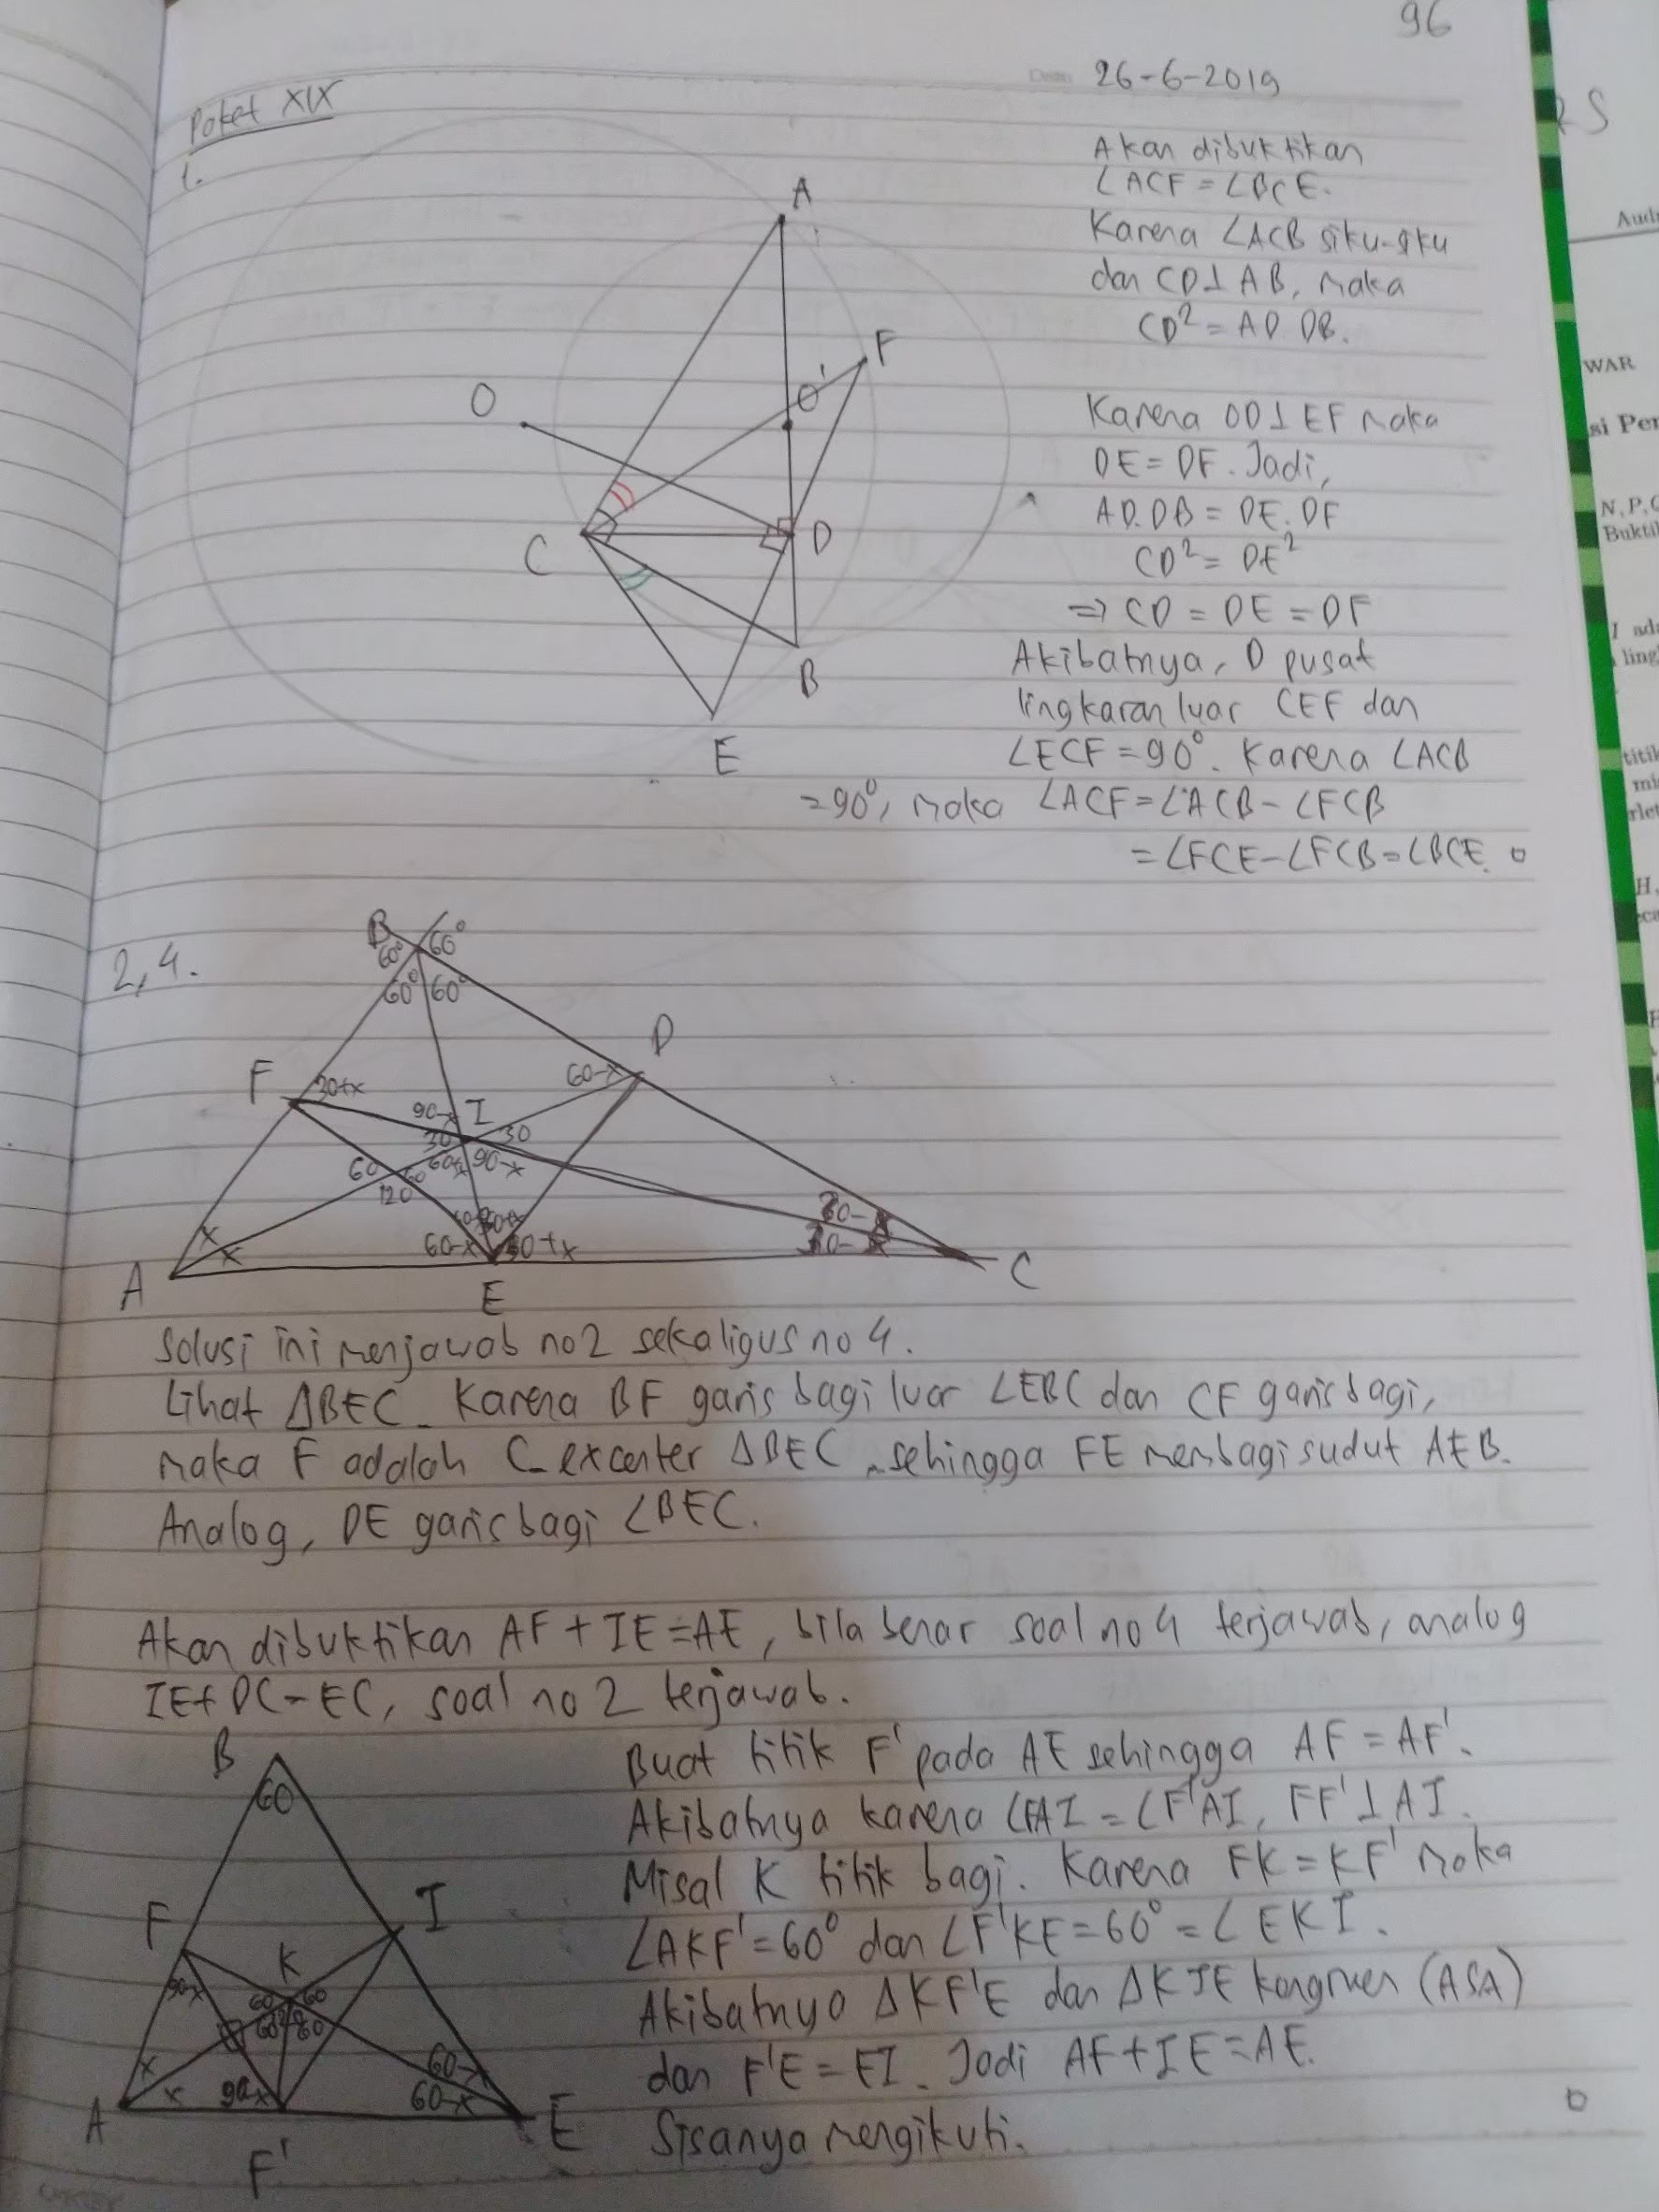 96
26-6-2019
Paket XIX
1.
Akan dibuktikan
∠ACF = ∠BCE.
Karena ∠ACB siku-siku
dan CD⊥AB, maka
CD² = AD.DB.
Karena OD⊥EF maka
DE = DF. Jadi,
AD.DB = DE.DF
CD² = DE²
⇒ CD = DE = DF
Akibatnya, D pusat
lingkaran luar CEF dan
∠ECF = 90°. Karena ∠ACB
= 90°, maka ∠ACF = ∠ACB - ∠FCB
= ∠FCE - ∠FCB = ∠BCE.
A
F
O'
O
C
D
B
E
2,4.
B
60° 60°
60° 60°
D
F
30+x
60-x
90-x I
30 30
60 60+x 90-x
120
x
x
60-x
30+x
A
E
C
Solusi ini menjawab no 2 sekaligus no 4.
Lihat ΔBEC. Karena BF garis bagi luar ∠EBC dan CF garis bagi,
maka F adalah C-excenter ΔBEC, sehingga FE membagi sudut AEB.
Analog, DE garis bagi ∠BEC.
Akan dibuktikan AF + IE = AE, bila benar soal no 4 terjawab, analog
IE + DC = EC, soal no 2 terjawab.
Buat titik F' pada AE sehingga AF = AF'.
Akibatnya karena ∠FAI = ∠F'AI, FF'⊥AI.
Misal K titik bagi. Karena FK = KF' maka
∠AKF' = 60° dan ∠F'KE = 60° = ∠EKI.
Akibatnya ΔKF'E dan ΔKIE kongruen (ASA)
dan F'E = EI. Jadi AF + IE = AE.
Sisanya mengikuti.
B
60
F
I
K
90-x
60 60
60 60
x
x
90-x
60-x
60-x
A
F'
E
WAR
si Per
N, P, C
Bukti